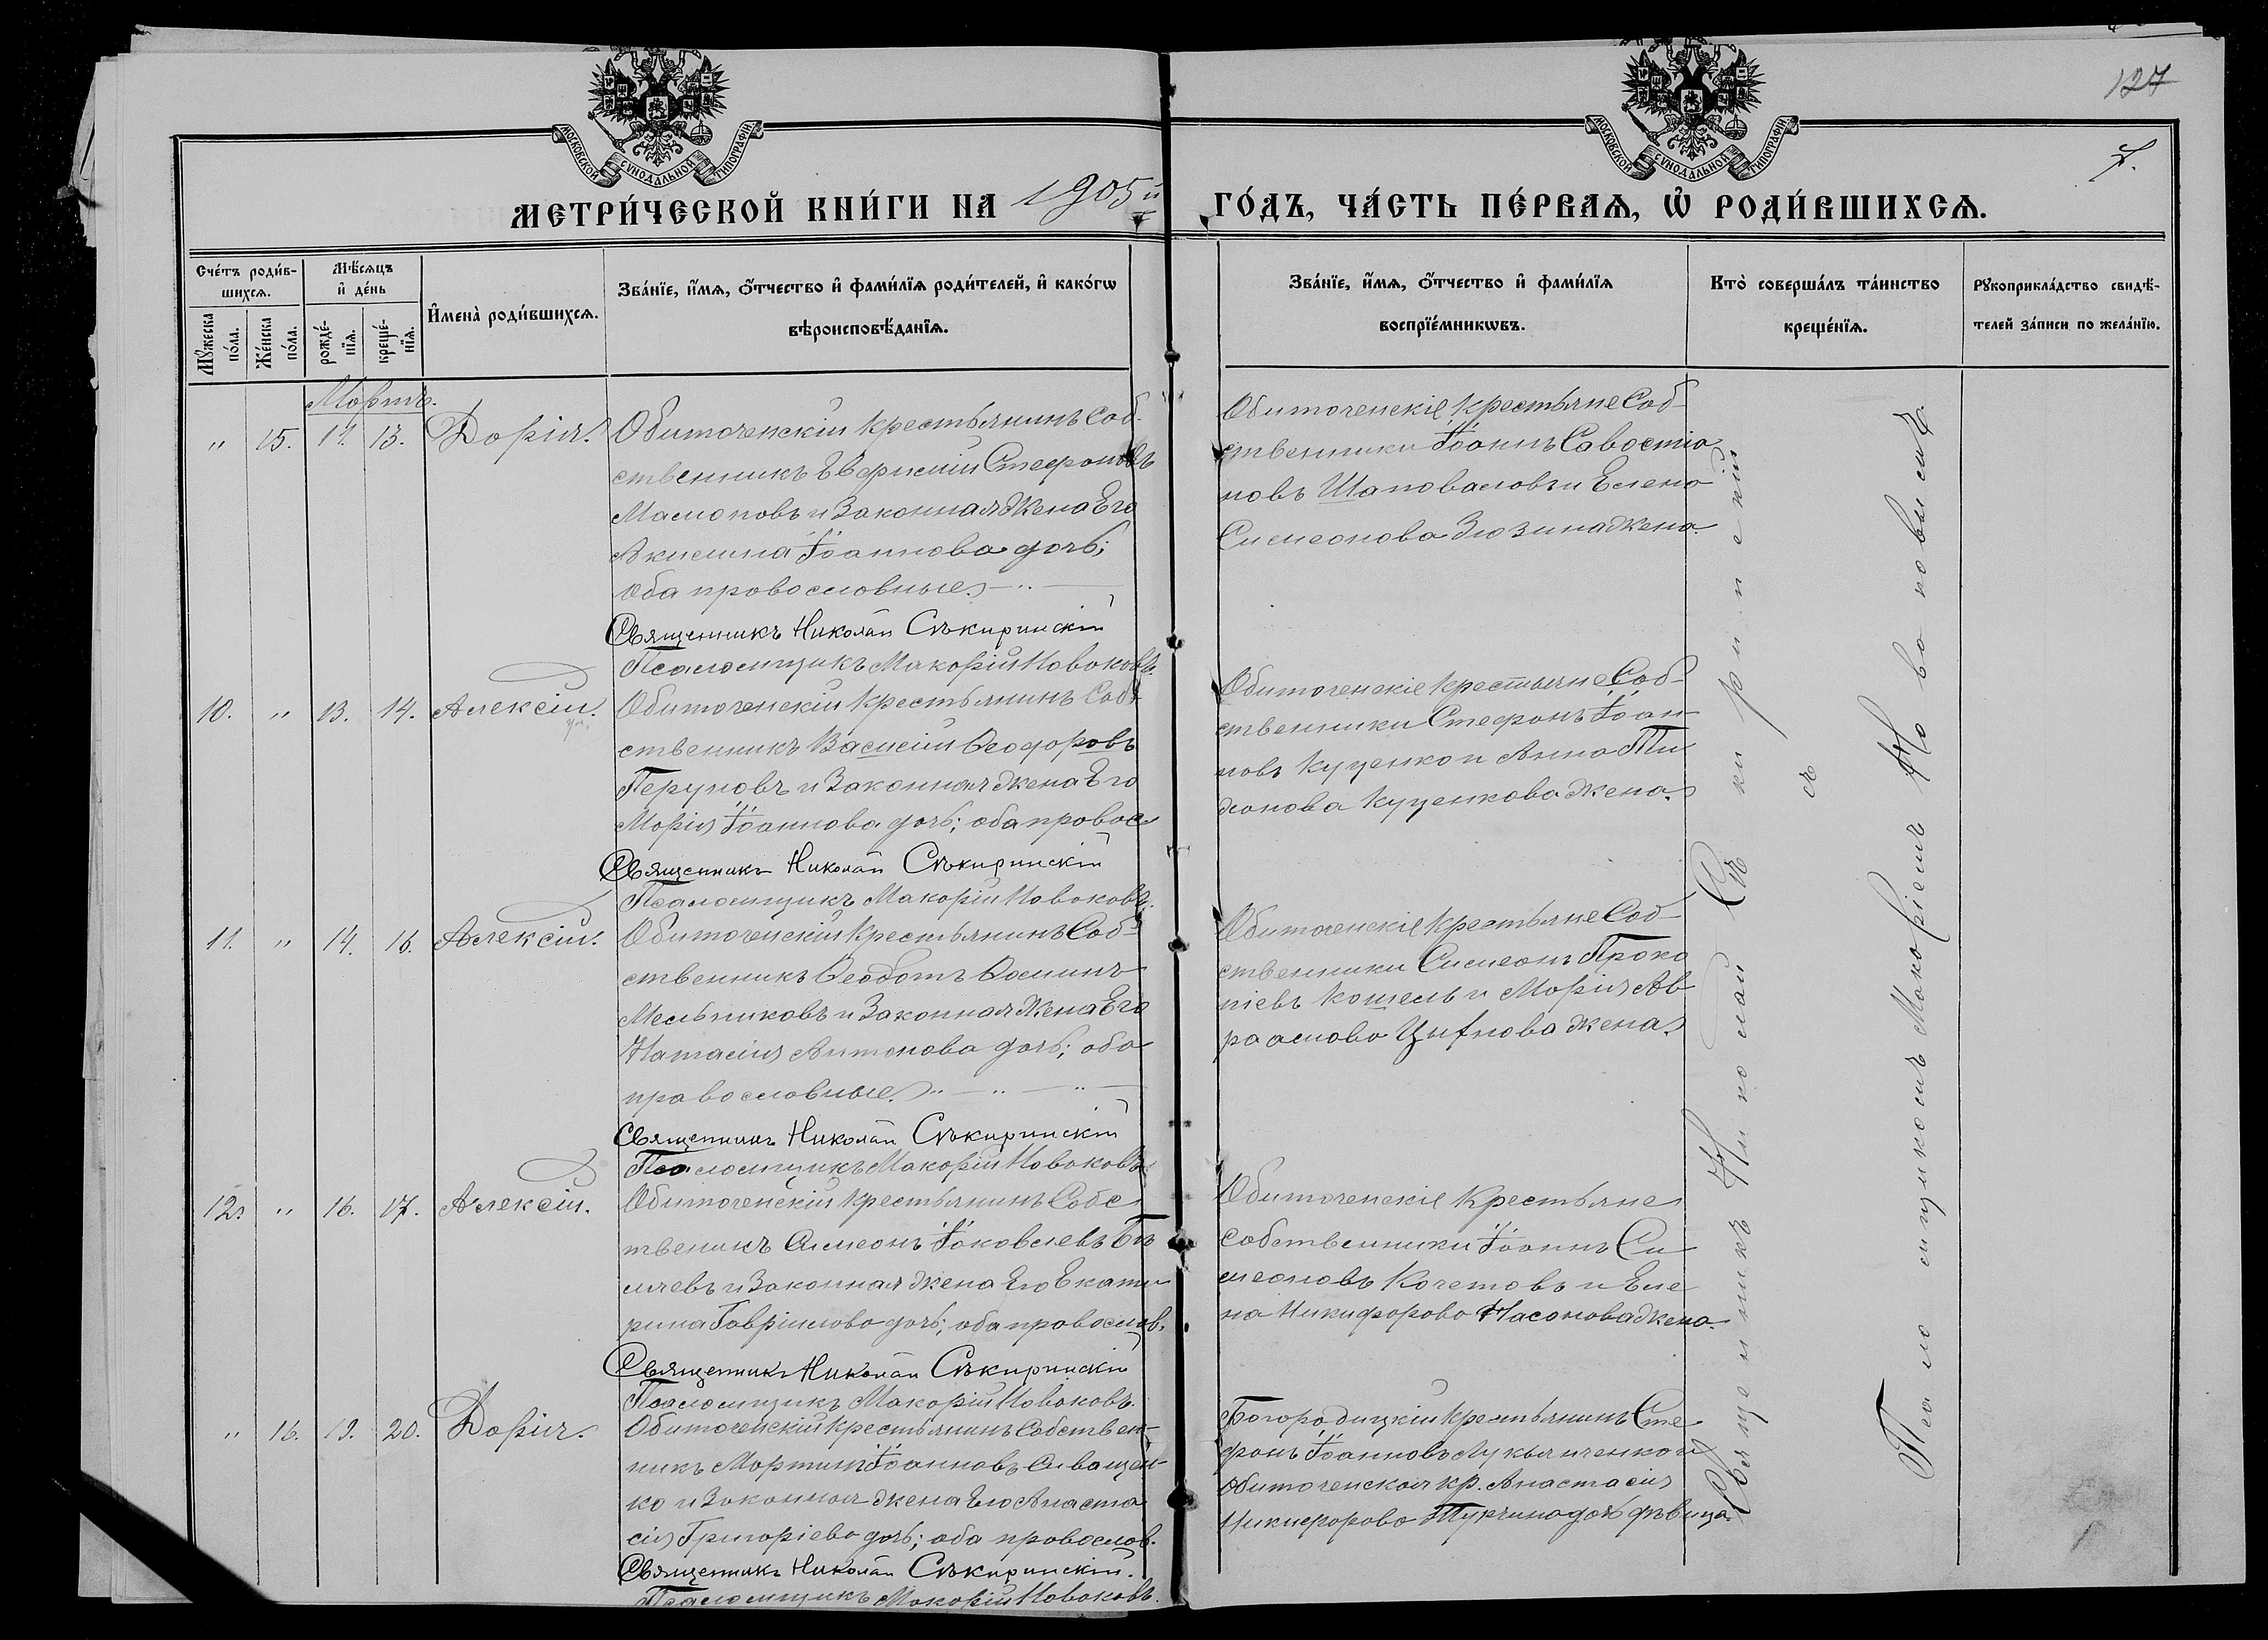 127
7.
МОСКОВСКОЙ СѴНОДАЛЬНОЙ ТИПОГРАФІИ
МОСКОВСКОЙ СѴНОДАЛЬНОЙ ТИПОГРАФІИ
МЕТРИ́ЧЕСКОЙ КНИ́ГИ НА 1905й ГО́ДЪ, ЧА́СТЬ ПЕ́РВАѦ, Ѡ҆ РОДИ́ВШИХСѦ.
Сче́тъ роди́в-
шихсѧ.
Мꙋ́жеска по́ла.
Же́нска по́ла.
Мѣ́сѧцъ
и҆ де́нь
рожде́-
нїѧ.
креще́-
нїѧ.
И҆мена̀ роди́вшихсѧ.
Зва́нїе, и҆́мѧ, ѻ҆́тчество и҆ фами́лїѧ роди́телей, и҆ како́гѡ
вѣроисповѣ́данїѧ.
Зва́нїе, и҆́мѧ, ѻ҆́тчество и҆ фами́лїѧ
воспрїе́мникѡвъ.
Кто̀ соверша́лъ та́инство
креще́нїѧ.
Рꙋкоприкла́дство свидѣ́-
телей за́писи по жела́нїю.
Мартъ.
" 15. 11. 13. Дарія.
Обиточенскій крестьянинъ Соб-
ственникъ Евфимій Стефановъ
и Законная жена Его
Акилина Іоаннова дочь;
оба православные
Священникъ Николай Сѣкиринскій
Псаломщикъ Макарій Новаковъ.
Обиточенскіе крестьяне Соб-
ственники Іоаннъ Савостіа
новъ Шаповаловъ и Елена
Симеонова Зюзина жена.
10. " 13. 14. Алексій.
Обиточенскій крестьянинъ Соб-
ственникъ Василій Ѳеодоровъ
Перуновъ и Законная жена Его
Марія Іоаннова дочь; оба правос
Священникъ Николай Сѣкиринскій
Псаломщикъ Макарій Новаковъ.
Обиточенскіе крестьяне Соб-
ственники Стефанъ Іоан-
новъ Куценко и Анна
Куценкова жена.
11. " 14. 16. Алексій.
Обиточенскій крестьянинъ Соб-
ственникъ Ѳеодотъ Ѳоминъ
Мельниковъ и Законная жена Его
Наталія Антонова дочь; оба
православные.
Священникъ Николай Сѣкиринскій
Псаломщикъ Макарій Новаковъ
Обиточенскіе крестьяне Соб-
ственники Симеонъ Проко
піевъ Кошель и Марія Ав
раамова жена.
12. " 16. 17. Алексій.
Обиточенскій крестьянинъ Собс
твеникъ Симеонъ Іаковлевъ Бѣ
ляевъ и Законная жена Его Екате
рина Гавріилова дочь; оба православ.
Священникъ Николай Сѣкиринскій
Псаломщикъ Макарій Новаковъ.
Обиточенскіе крестьяне
собственники Іоаннъ Си
меоновъ Кочетовъ и Еле
на Никифорова Насонова жена.
" 16. 19. 20. Дарія.
Обиточенскій крестьянинъ Собствен-
никъ Мартинъ Іоанновъ Иващен-
ко и Законная жена Его Анаста
сія Григоріева дочь; оба православ.
Священникъ Николай Сѣкиринскій.
Псаломщикъ Макарій Новаковъ.
Богородицкій крестьянинъ Сте
фанъ Іоанновъ Лукьянченко и
Обиточенская кр. Анастасія
Никифорова Турчина дочь дѣвица.
Священникъ Николай Сѣкиринскій
съ
Псаломщикомъ Макаріемъ Новаковымъ.